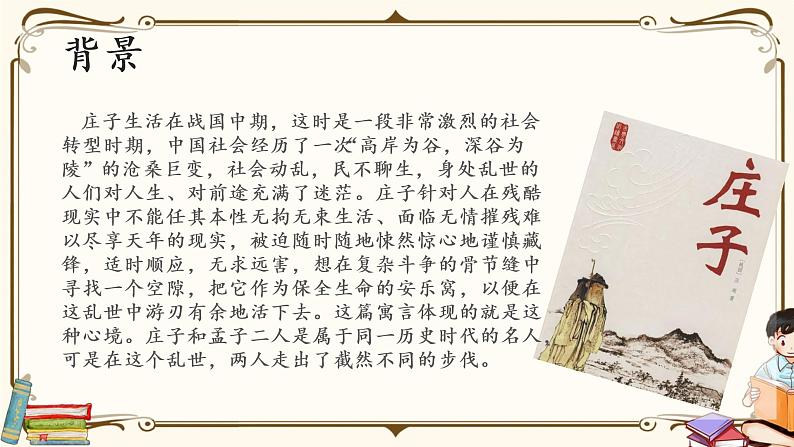 背景
庄子生活在战国中期，这时是一段非常激烈的社会
转型时期，中国社会经历了一次“高岸为谷，深谷为
陵”的沧桑巨变，社会动乱，民不聊生，身处乱世的
人们对人生、对前途充满了迷茫。庄子针对人在残酷
现实中不能任其本性无拘无束生活、面临无情摧残难
以尽享天年的现实，被迫随时随地悚然惊心地谨慎藏
锋，适时顺应，无求远害，想在复杂斗争的骨节缝中
寻找一个空隙，把它作为保全生命的安乐窝，以便在
这乱世中游刃有余地活下去。这篇寓言体现的就是这
种心境。庄子和孟子二人是属于同一历史时代的名人，
可是在这个乱世，两人走出了截然不同的步伐。
庄子